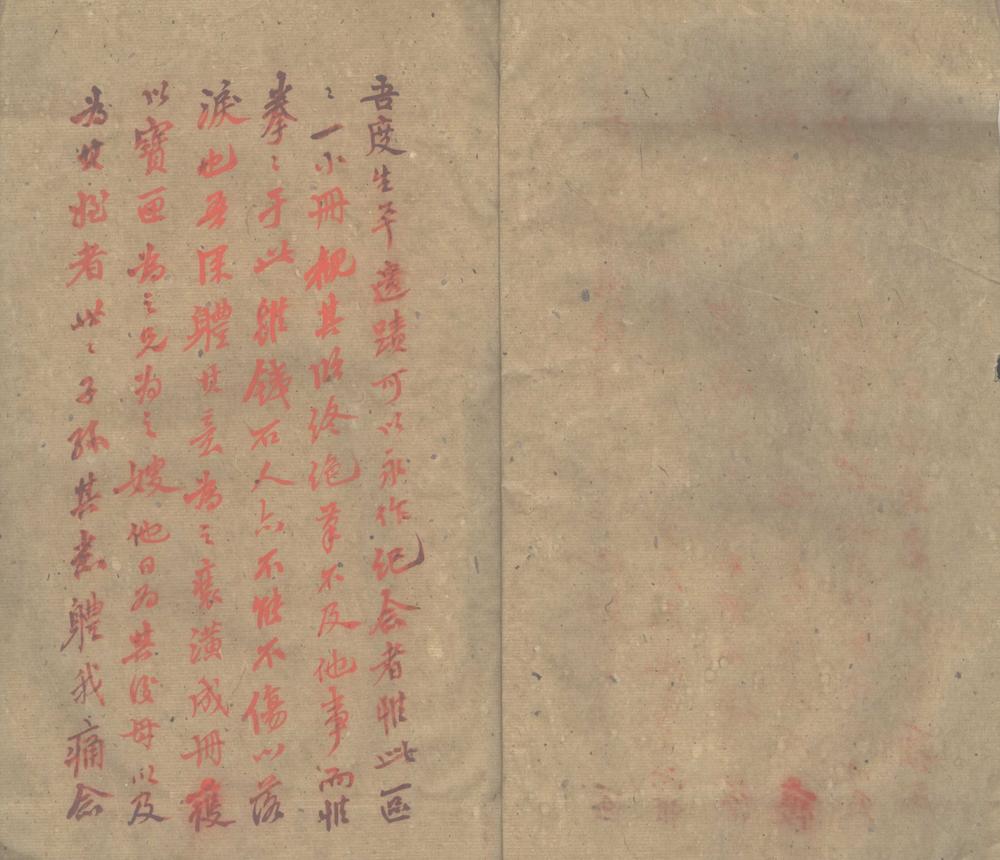 吾度生平遺蹟可以永作紀念者惟此區
〻一小冊觀其臨終絕筆不及他事而惟
拳〻于此雖錢石人亦不能不傷心落
淚也吾深體其意為之裱潢成冊護
以寶匣為之兄為之嫂他日為其後母以及
為其姪者世〻子孫其善體我痛念